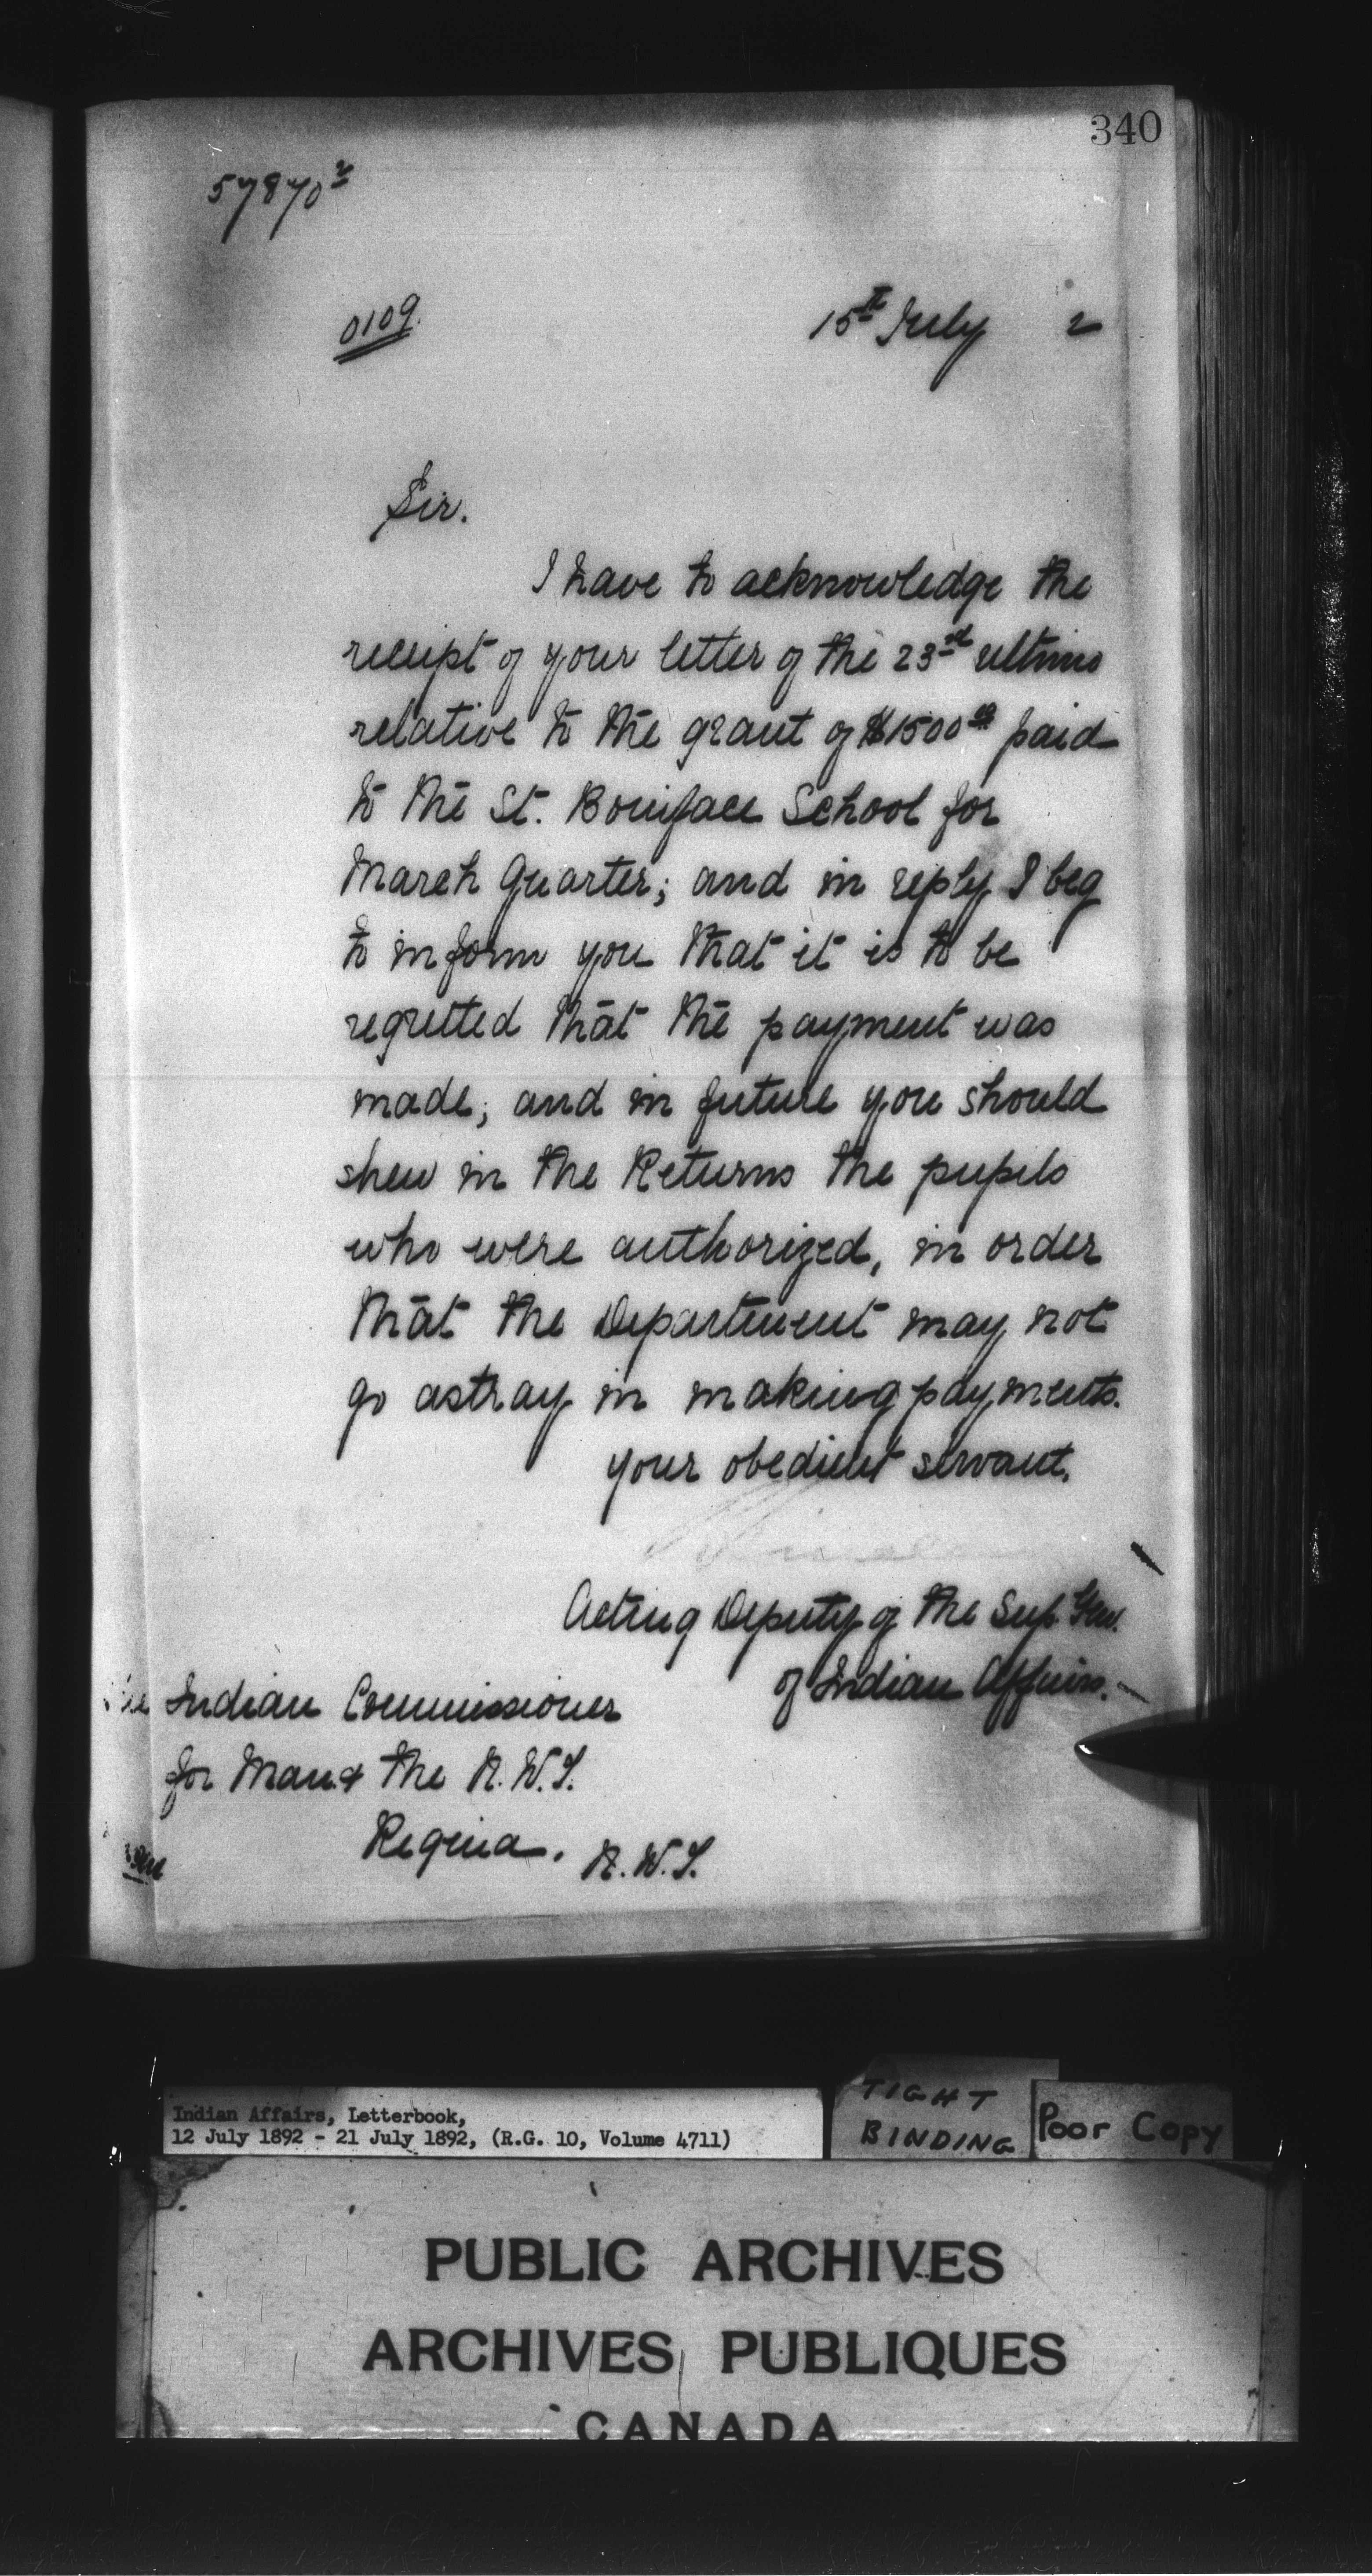 340
57870²
0109.
15th July 2
Sir.
I have to acknowledge the
receipt of your letter of the 23rd ultimo
relative to the grant of $1500.00 paid
to the St. Boniface School for
March Quarter; and in reply I beg
to inform you that it is to be
regretted that the payment was
made, and in future you should
shew in the Returns the pupils
who were authorized, in order
that the Department may not
go astray in making payments.
your obedient servant.
Acting Deputy of the Sup. Gen.
of Indian Affairs.
Indian Commissioner
for Man & the N.W.T.
Regina. N.W.T.
Indian Affairs, Letterbook,
12 July 1892 - 21 July 1892, (R.G. 10, Volume 4711)
TIGHT
BINDING
Poor Copy
PUBLIC ARCHIVES
ARCHIVES PUBLIQUES
CANADA